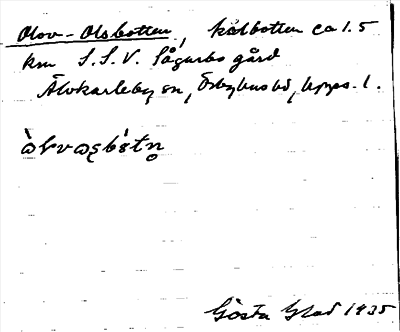 Olov-Olsbotten, kolbotten ca 1.5
km S.S.V. Sågarbo gård
Älvkarleby sn, Örbyhus hd, Upps. l.
Gösta Glad 1935